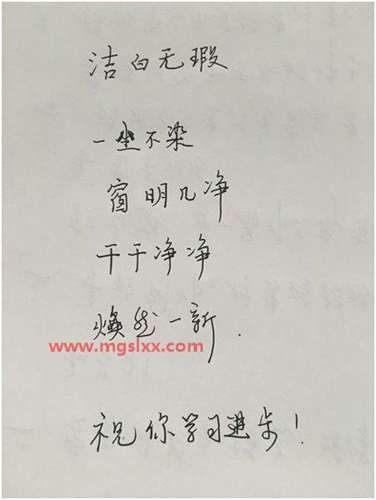 洁白无瑕
一尘不染
窗明几净
干干净净
焕然一新.
www.mgslxx.com
祝你学习进步!